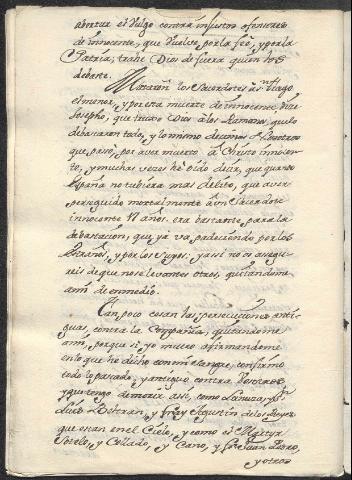 abortar el Vulgo contra injustos ofensores
de innocente, que vuelve por la fee, y por la
Patria, trahe Dios de fuera quien los
debaste.
Mataron los Sacerdotes a Stiago
el menor, y por esta muerte de innocente, dize
Josepho, que truxo Dios a los Romanos, que lo
debastaron todo, y lo mismo decimos
que pasò, por aver muerto a Christo innocen-
te, y muchas veces hè oido decir, que quando
España no tubiera mas delito, que aver
perseguido mortalmente à vn Sacerdote
innocente 17 años, era bastante para la
debastacion, que ya và padeciendo por los
estraños, y por los suyos. y assi no os asegu-
reis de que no se levanten otros, quitandome
a mi de en medio.
Tan poco cesan las persecuciones anti-
guas, contra la Compañia, quitandome
a mi, porque si yo muero afirmandome
en lo que he dicho con mi sangre, confirmo
todo lo pasado, y antiguo contra
y que tengo de morir assi, como Lanuza, y S.
Luis Beltran, y fray Agustin de los Reyes
que estan en el Cielo, y como el Martyr
Sotelo, y Collado, y Cano, y
y otros